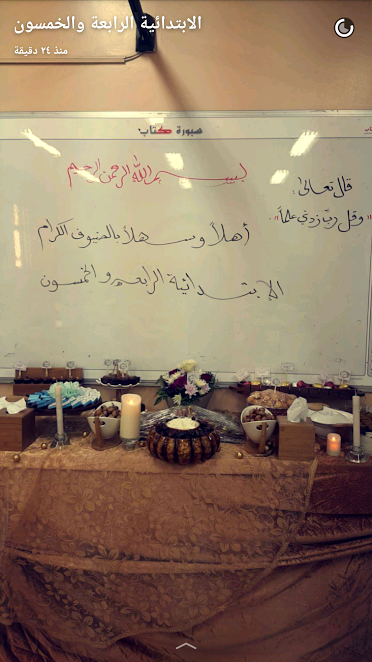 الابتدائية الرابعة والخمسون
منذ ٢٤ دقيقة
سبورة كتاب
بسم الله الرحمن الرحيم
قال تعالى:
"وقل ربّ زدني علماً".
أهلاً وسهلاً بالضيوف الكرام
الابتدائية الرابعة والخمسون